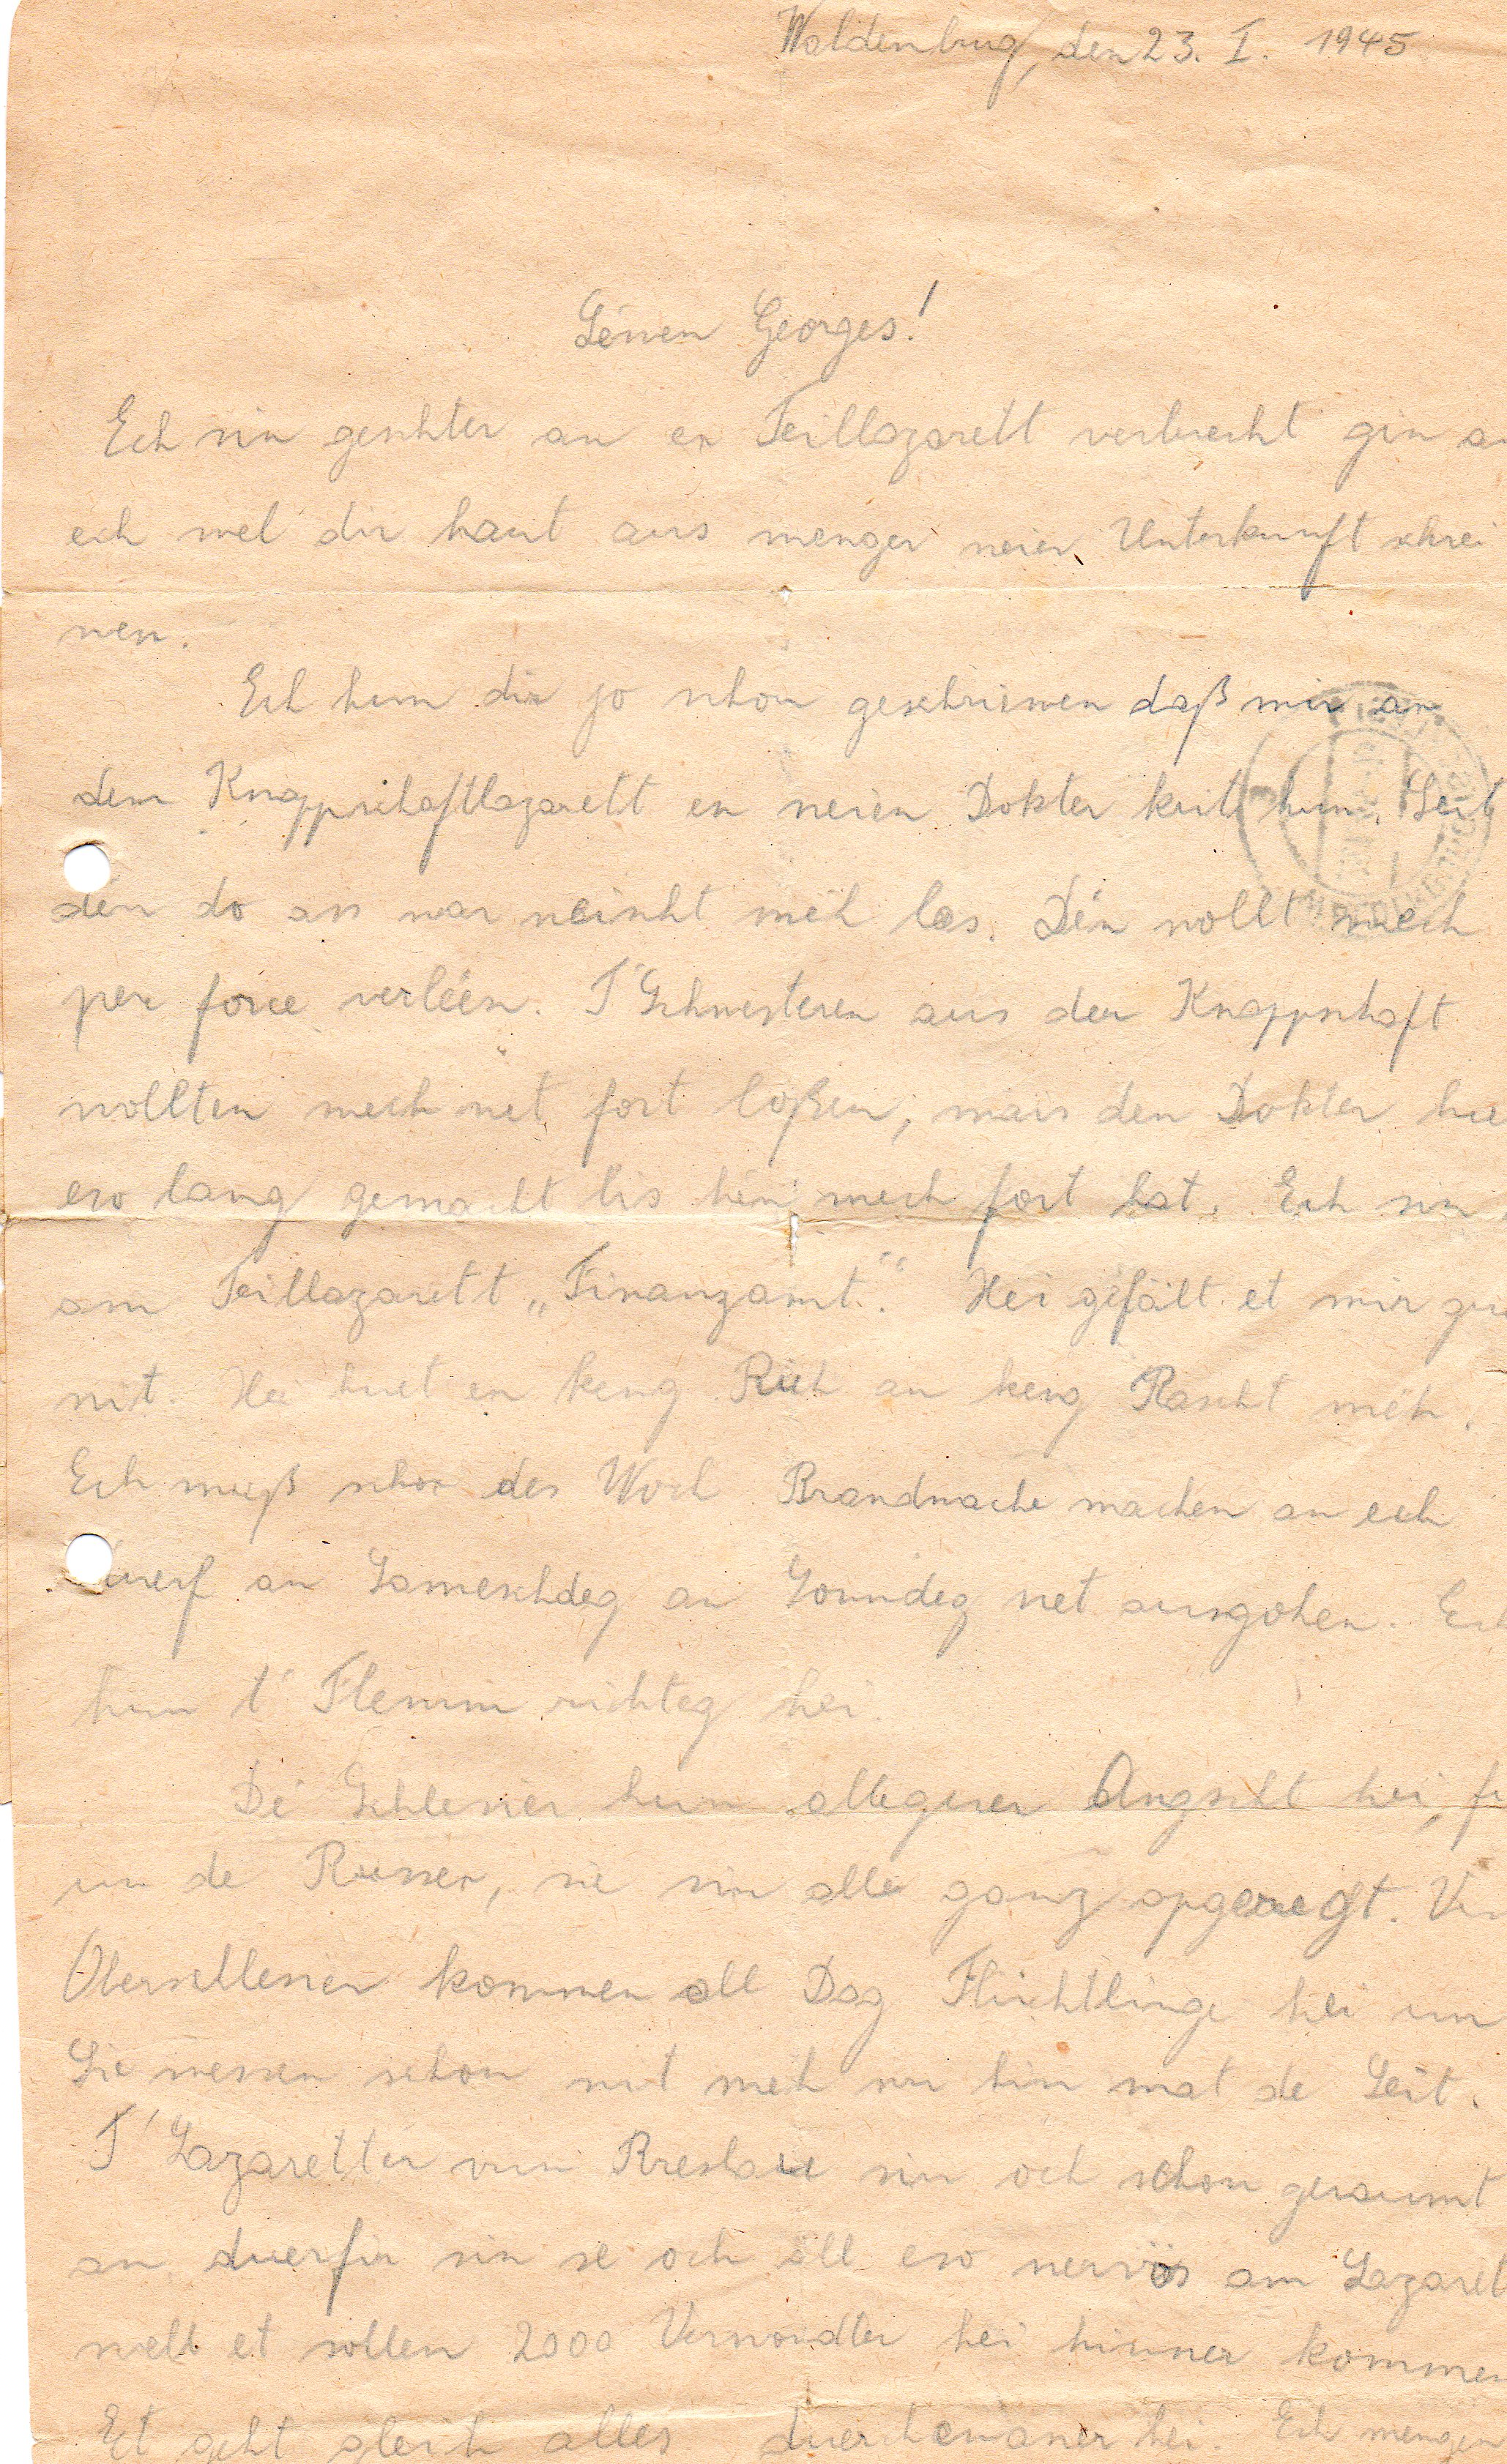 Waldenburg, den 23. I. 1945
Léwen Georges!
Ech sin geschter an en Teillazarett verbrecht gin an
ech wel dir haut aus menger neier Unterkunft schrei
wen.
Ech hun dir jo schon geschriwen daß mir an
dem Knappschaftlazarett en neien Dokter krit hun. Seit
dén do ass war neischt méh los. Dén wollt mech
per force verléen. T'Schwesteren aus der Knappschaft
wollten mech net fort loßen, mais den Dokter hue
eso lang gemacht bis hén mech fort hat. Ech sin
am Teillazarett „Finanzamt". Hei gefält et mir gu
nit. Hei huet en keng Rüh an keng Rascht méh.
Ech muß schon des Woch Brandwache machen an ech
duerf an Sameschdeg an Sonndeg net ausgohen. Ech
hun t'Flemm richteg hei.
Dé Schlesier hun alleguer Angscht hei, fi
un de Russen, sie sin alle ganz opgeregt. Vu
Oberschlesien kommen all Dag Flüchtlinge hei un
Sie wessen schon nit méh wu hin mat de Leit.
T'Lazaretter vun Breslau sin och schon geraumt
an duerfir sin se och all eso nervös am Lazaret
well et sollen 2000 Verwondter hei hinner kommen
Et geht gleich alles duerchenaner hei. Ech mengen